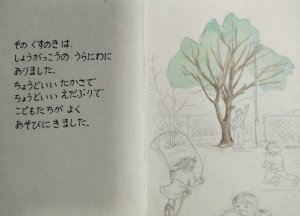 その くすのき は、
しょうがっこうの うらにわに
ありました。
ちょうどいい たかさで
ちょうどいい えだぶりで
こどもたちが よく
あそびに きました。